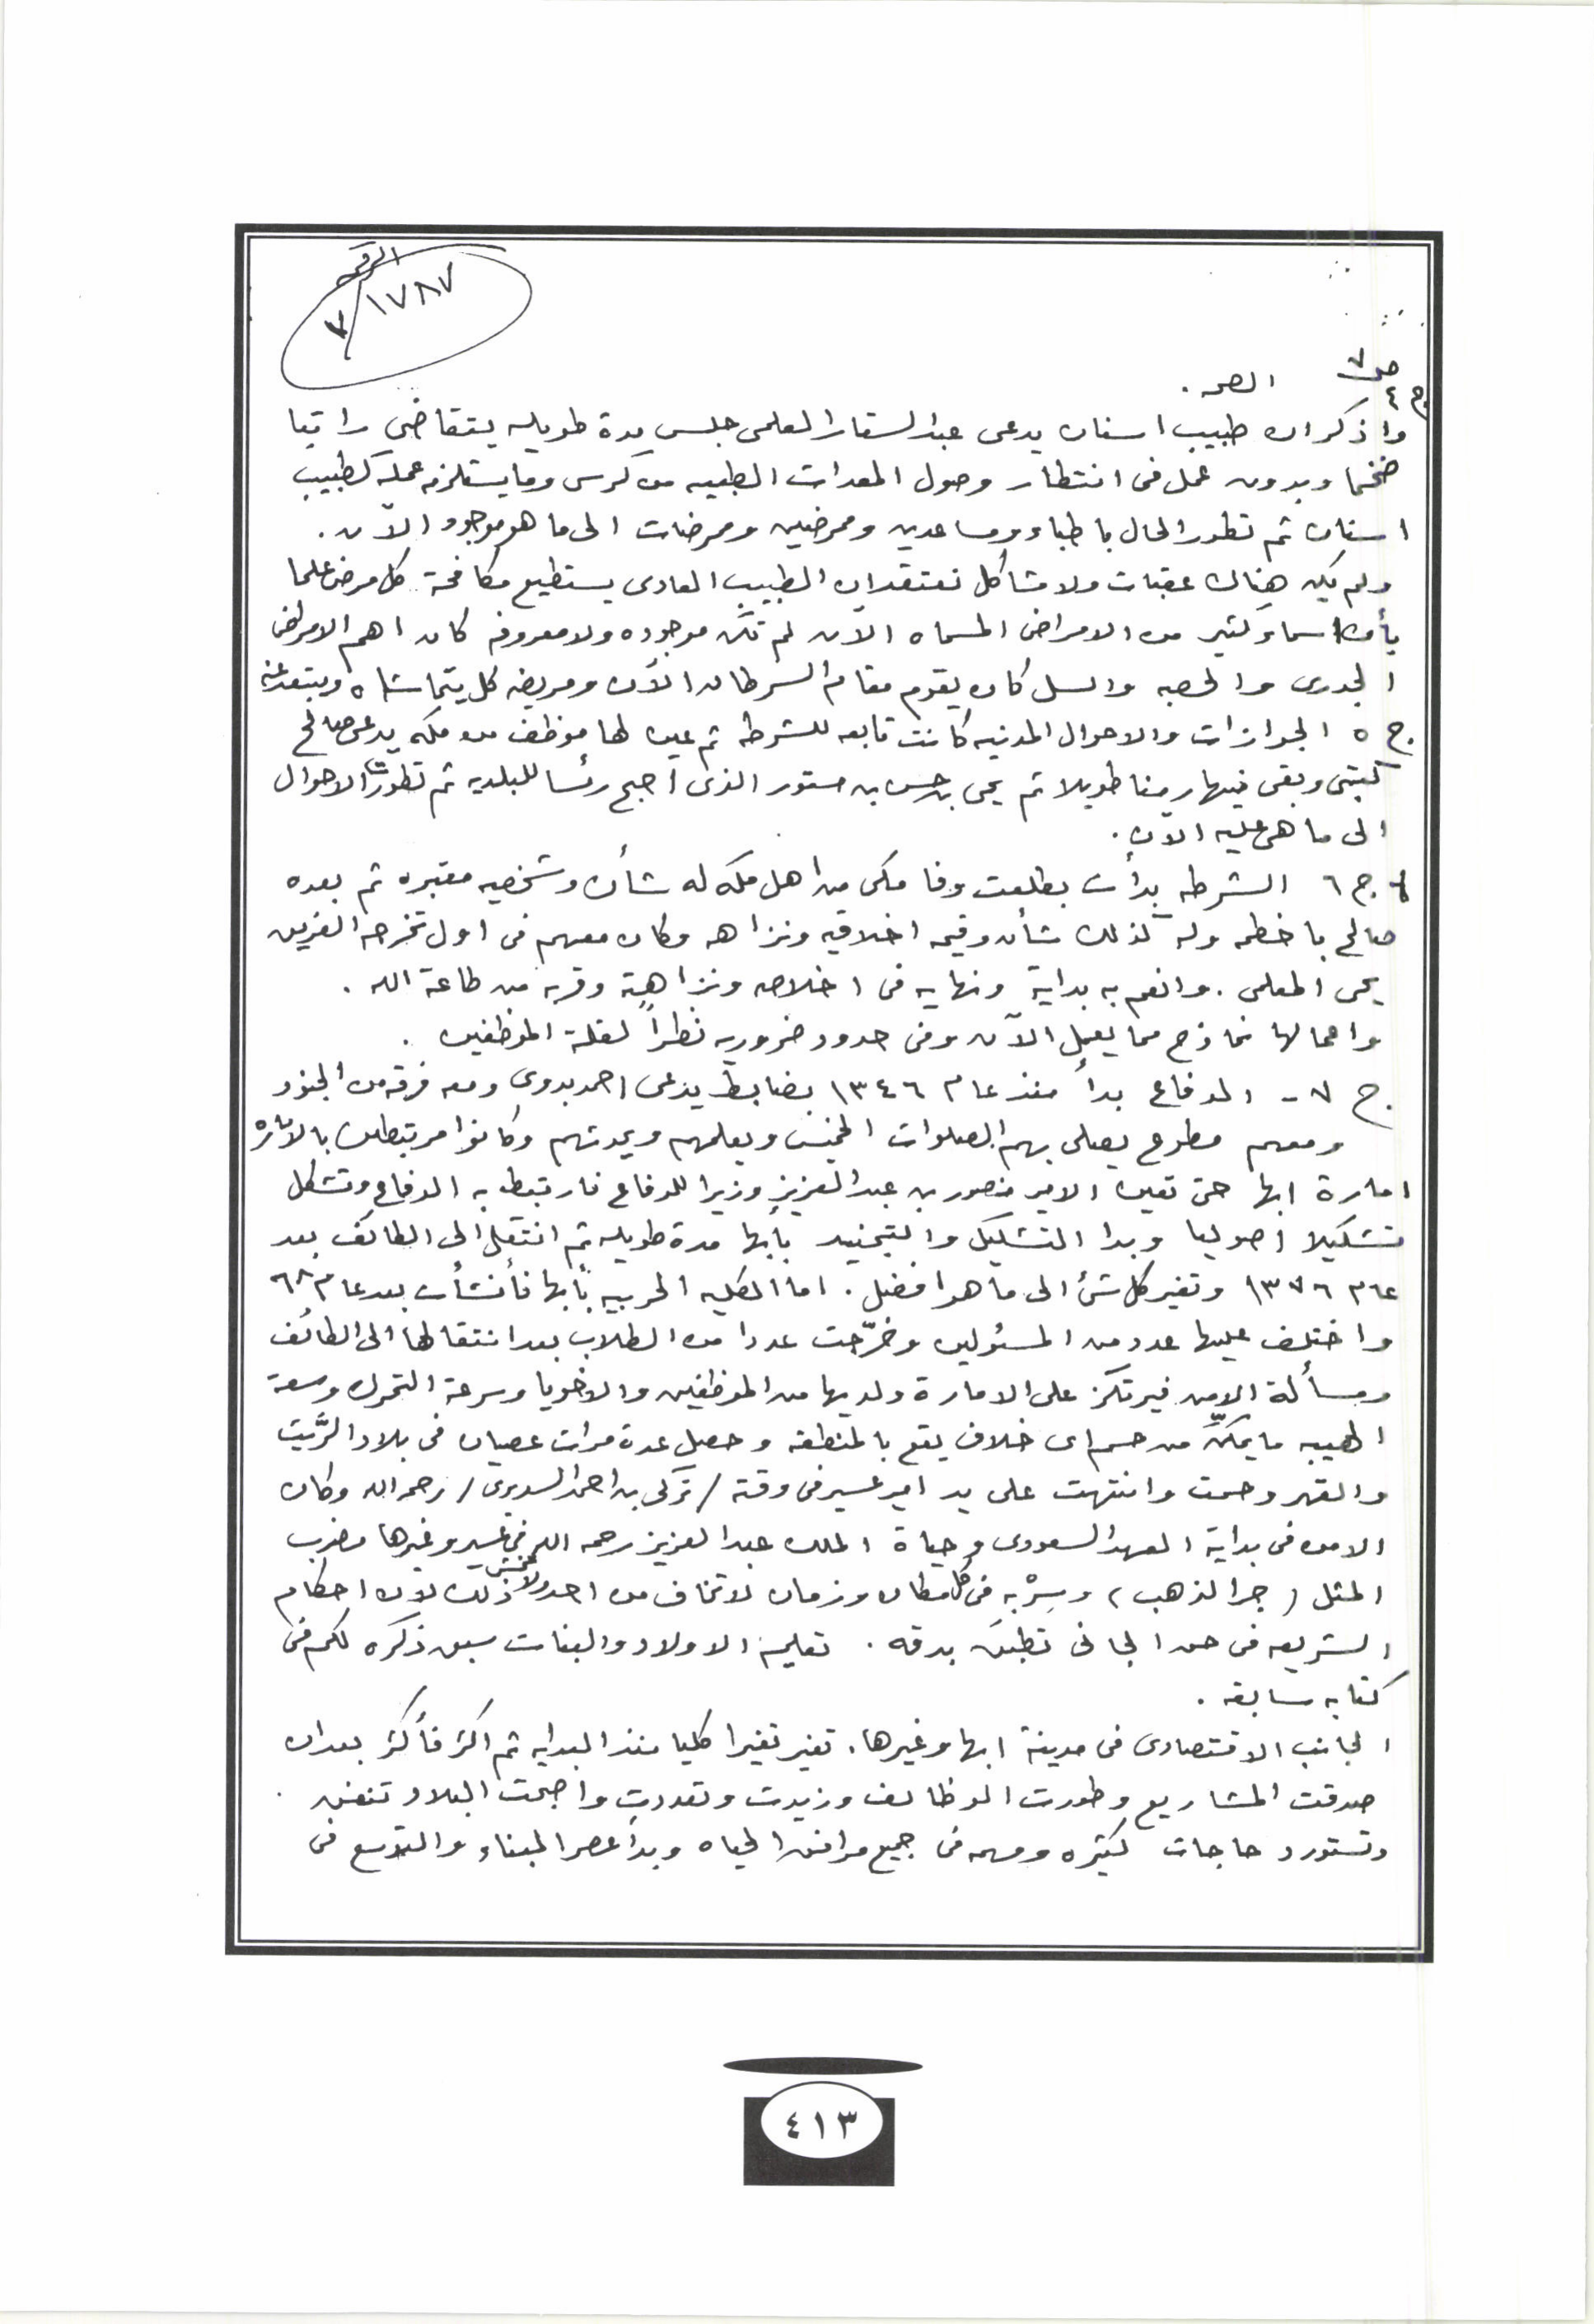 الرقم
١٧٨٧/٧
ص٧
ج٤ الصحه .
واذكر ان طبيب اسنان يدعى عبدالستار المعلمى جلس مدة طويله يتقاضى راتبا
ضخما وبدون عمل فى انتظار وصول المعدات الطبيه من كرسى وما يستلزمه عمله كطبيب
اسنان ثم تطور الحال باطباء ومساعدين وممرضين وممرضات الى ما هو موجود الآن .
ولم يكن هناك عقبات ولا مشاكل نعتقد ان الطبيب العادى يستطيع مكافحة كل مرض علما
بأن اسماء كثير من الامراض المسماه الآن لم تكن موجوده ولا معروفه كان اهم الامراض
الجدرى والحصبه والسل كان يقوم مقام السرطان الآن ومريضه كل يتحاشاه ويبتعد عنه
ج ٥ الجوازات والاحوال المدنيه كانت تابعه للشرطه ثم عين لها موظف من مكه يدعى صالح
كتبى وبقى فيها زمنا طويلا ثم يحى بن حسن بن مستور الذى اصبح رئسا للبلديه ثم تطورت الاحوال
الى ما هى عليه الآن .
ج ٦ الشرطه بدأت بطلعت وفا مكى من اهل مكه له شأن وشخصيه معتبره ثم بعده
صالح باخطمه وله كذلك شأن وقيمه اخلاقيه ونزاهه وكان معهم فى اول تخرجه الفريق
يحى المعلمى . وانعم به بداية ونهايه فى اخلاصه ونزاهته وقربه من طاعة الله .
واعمالها نماذج مما يعمل الآن وفى حدود ضروريه نظراً لقلة الموظفين .
ج ٧ - الدفاع بدأ منذ عام ١٣٤٦ بضابط يدعى احمد بدوى ومعه فرقه من الجنود
ومعهم مطوع يصلى بهم الصلوات الخمس ويعلمهم ويحدثهم وكانوا مرتبطين بالاماره
امارة ابها حتى تعين الامير منصور بن عبدالعزيز وزيرا للدفاع فارتبط به الدفاع وتشكل
تشكيلا اصوليا وبدا التشكيل والتجنيد بأبها مدة طويله ثم انتقل الى الطائف بعد
عام ١٣٧٦ وتغير كل شئ الى ما هو افضل . اما الكليه الحربيه بأبها فأنشأت بعد عام ٦٨
واختلف عليها عدد من المسئولين وخرّجت عددا من الطلاب بعد انتقالها الى الطائف
ومسألة الامن فيرتكز على الامارة ولديها من الموظفين والاخويا وسرعة التحرك وسعة
الهيبه ما يمكّن من حسم اى خلاف يقع بالمنطقه وحصل عدة مرات عصيان فى بلاد الرَّيث
والقهر وحسمت وانتهت على يد امير عسير فى وقته / تركى بن احمد السديرى / رحمه الله وكان
الامن فى بداية العهد السعودى وحياة الملك عبدالعزيز رحمه الله فى عسير وغيرها مضرب
المثل ( جر الذهب ) وسِرْ به فى كل مكان وزمان لا تخاف من احد ولا تخش ذلك لان احكام
الشريعه فى حق الجانى تطبق بدقه . تعليم الاولاد والبنات سبق ذكره لكم فى
كتابه سابقه .
الجانب الاقتصادى فى مدينة ابها وغيرها . تغير تغيرا كليا منذ البدايه ثم اكثر فأكثر بعد ان
صدقت المشاريع وطورت الوظائف وزيدت وتعددت واصبحت البلاد تنفس
وتستورد حاجات كثيره ومهمه فى جميع مرافق الحياه وبدأ عصر البناء والتوسع فى
٤١٣